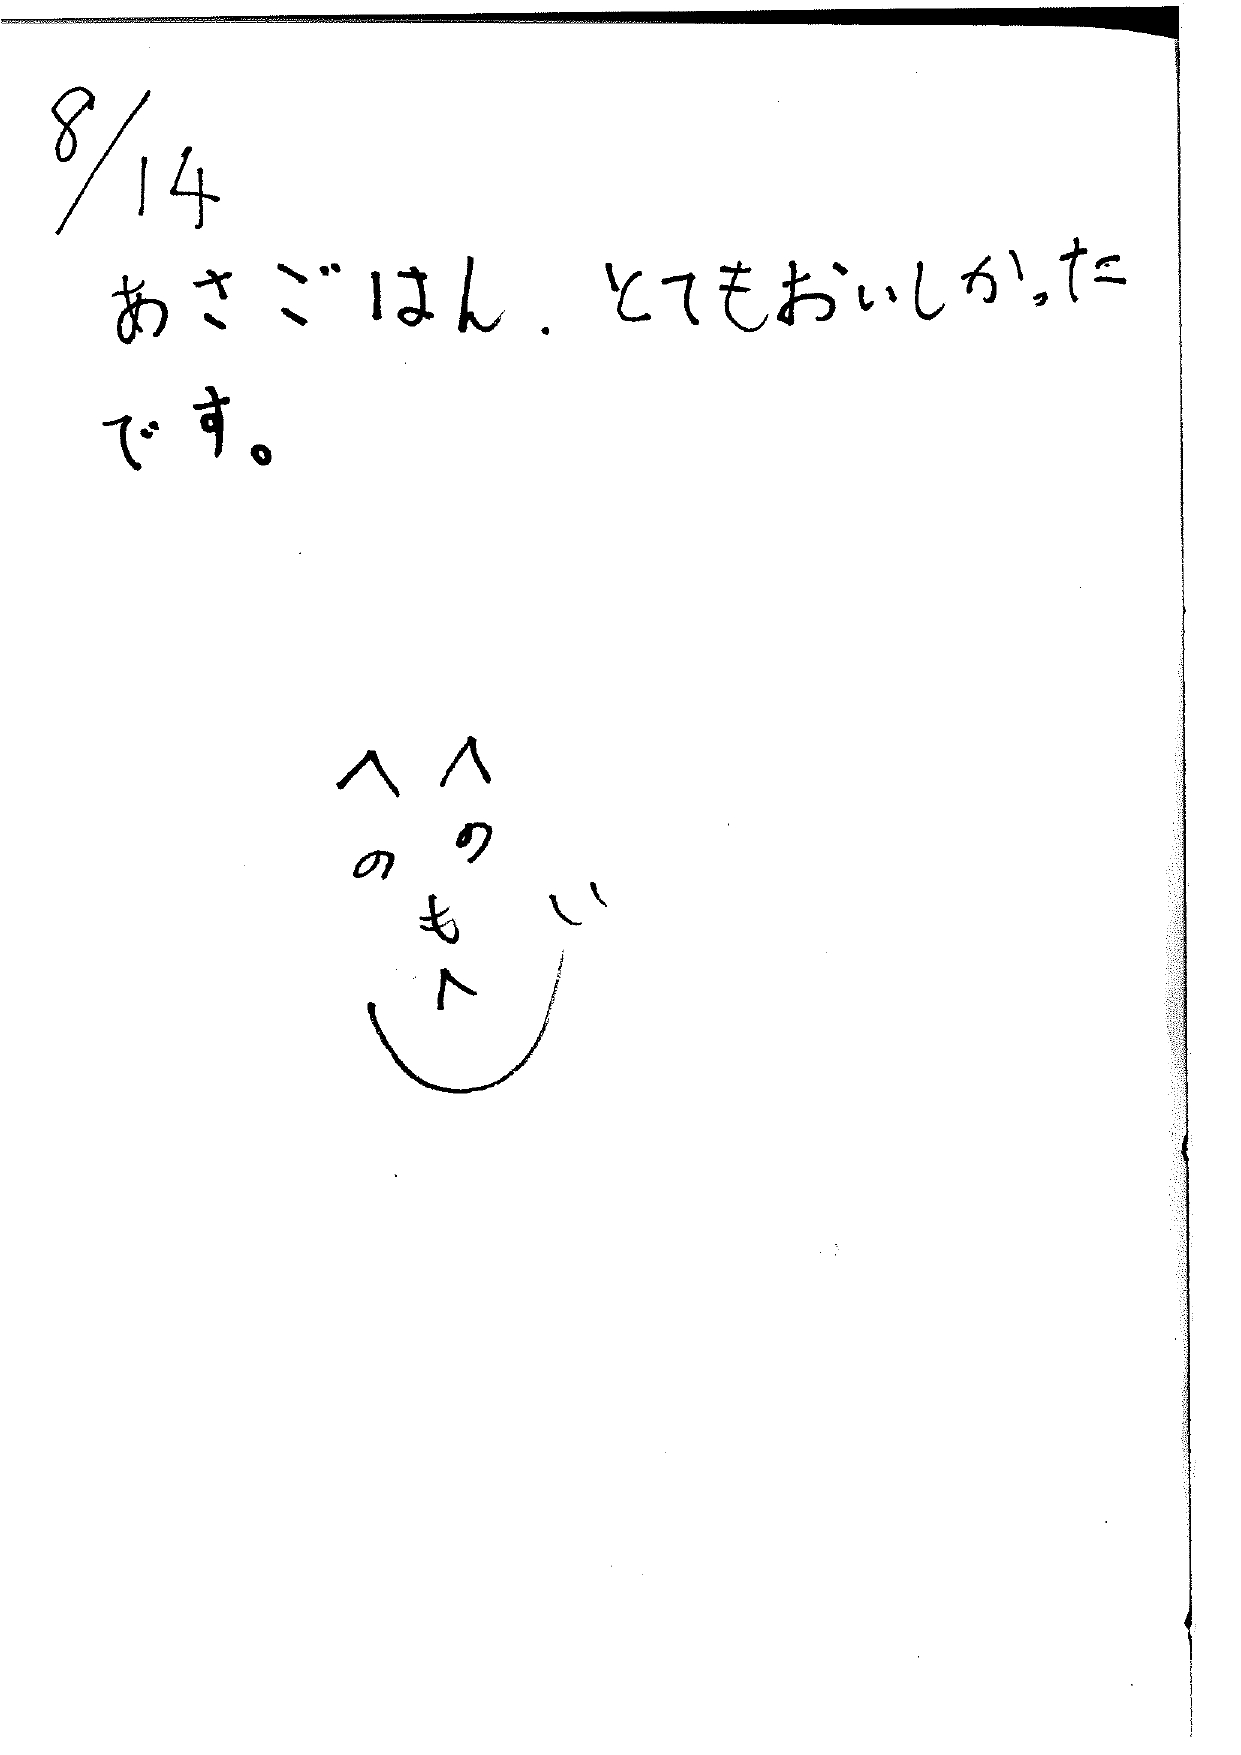 8/14
あさごはん. とてもおいしかった
です。
へ へ
の の
も い
へ